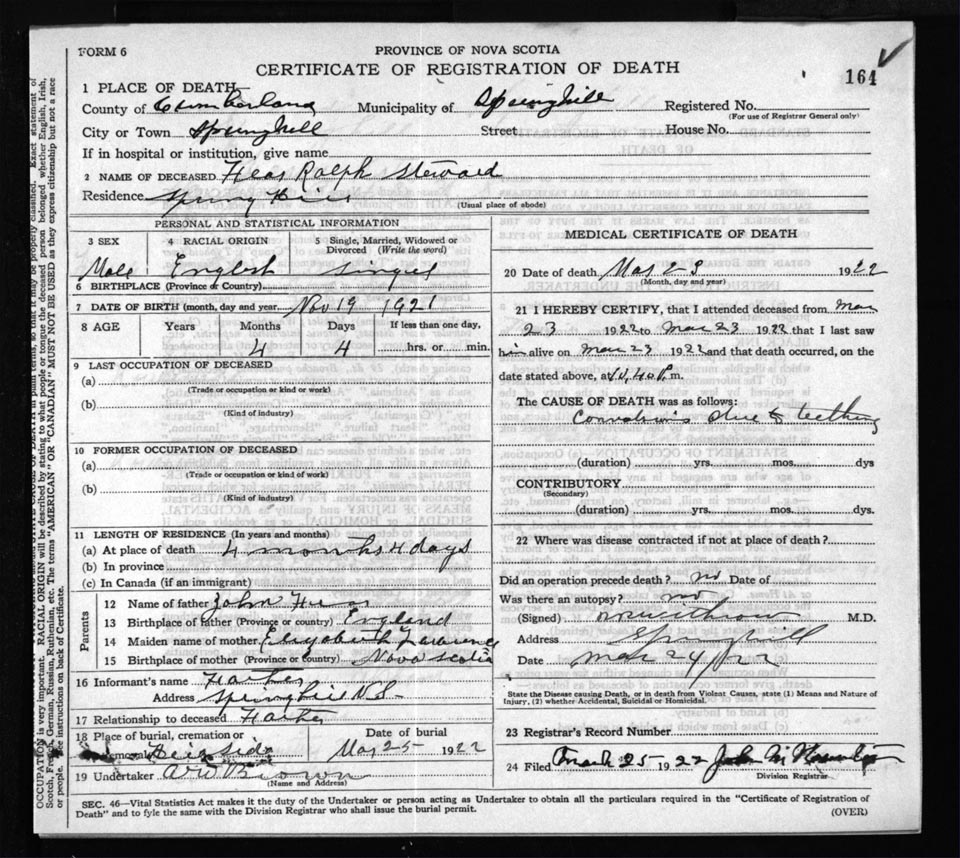 FORM 6
PROVINCE OF NOVA SCOTIA
CERTIFICATE OF REGISTRATION OF DEATH
164
1 PLACE OF DEATH
County of Cumberland Municipality of Springhill Registered No.
(For use of Registrar General only)
City or Town Springhill Street House No.
If in hospital or institution, give name
2 NAME OF DECEASED Ralph Steward
Residence Spring Hill
(Usual place of abode)
PERSONAL AND STATISTICAL INFORMATION
3 SEX 4 RACIAL ORIGIN 5 Single, Married, Widowed or Divorced (Write the word)
Male English Single
6 BIRTHPLACE (Province or Country)
7 DATE OF BIRTH (month, day and year) Nov 19 1921
8 AGE Years Months Days If less than one day,
4 4 hrs. or min.
9 LAST OCCUPATION OF DECEASED
(a)
(Trade or occupation or kind or work)
(b)
(Kind of industry)
10 FORMER OCCUPATION OF DECEASED
(a)
(Trade or occupation or kind of work)
(b)
(Kind of industry)
11 LENGTH OF RESIDENCE (In years and months)
(a) At place of death 4 months 4 days
(b) In province
(c) In Canada (if an immigrant)
Parents
12 Name of father John
13 Birthplace of father (Province or country) England
14 Maiden name of mother Elizabeth
15 Birthplace of mother (Province or country) Nova Scotia
16 Informant's name Father
Address Springhill N.S.
17 Relationship to deceased Father
18 Place of burial, cremation or removal Hillside Date of burial Mar 25 1922
19 Undertaker A W Brown
(Name and Address)
MEDICAL CERTIFICATE OF DEATH
20 Date of death Mar 23 1922
(Month, day and year)
21 I HEREBY CERTIFY, that I attended deceased from Mar
23 1922 to Mar 23 1922 that I last saw
him alive on Mar 23 1922 and that death occurred, on the
date stated above, at 10.40 P. m.
The CAUSE OF DEATH was as follows:
Convulsions due to teething
(duration) yrs. mos. dys
CONTRIBUTORY
(Secondary)
(duration) yrs. mos. dys.
22 Where was disease contracted if not at place of death?
Did an operation precede death? no Date of
Was there an autopsy? no
(Signed) M.D.
Address Springhill
Date Mar 24/22
State the Disease causing Death, or in death from Violent Causes, state (1) Means and Nature of
Injury, (2) whether Accidental, Suicidal or Homicidal.
23 Registrar's Record Number
24 Filed March 25 1922 John
Division Registrar
SEC. 46—Vital Statistics Act makes it the duty of the Undertaker or person acting as Undertaker to obtain all the particulars required in the "Certificate of Registration of
Death" and to fyle the same with the Division Registrar who shall issue the burial permit.
(OVER)
OCCUPATION is very important. RACIAL ORIGIN will be described by stating to what people or tongue the deceased person belonged whether English, Irish,
Scotch, French, German, Russian, Ruthenian, etc. The terms "AMERICAN" OR "CANADIAN" MUST NOT BE USED as they express citizenship but not a race
or people. See instructions on back of Certificate.